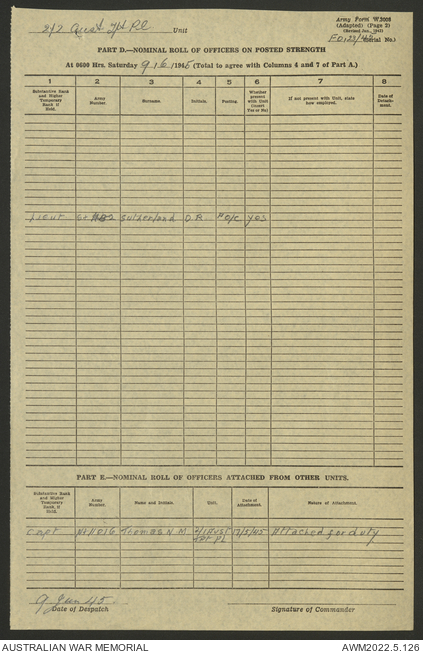 Army Form W.3008
(Adapted) (Page 2)
2/2 Aust Unit
(Serial No.)
PART D.—NOMINAL ROLL OF OFFICERS ON POSTED STRENGTH
At 0600 Hrs. Saturday 9/6/1945 (Total to agree with Columns 4 and 7 of Part A.)
1 2 3 4 5 6 7 8
Substantive Rank and Higher Temporary Rank if Held. Army Number. Surname. Initials. Posting. Whether present with Unit (insert Yes or No) If not present with Unit, state how employed. Date of Detachment.
Lieut Sutherland D.R. O/C yes
PART E.—NOMINAL ROLL OF OFFICERS ATTACHED FROM OTHER UNITS.
Substantive Rank and Higher Temporary Rank if Held. Army Number. Name and Initials. Unit. Date of Attachment. Nature of Attachment.
Capt Thomas N.M. 2/1 Aust 17/5/45 Attached for duty
PL
9 Jun 45.
Date of Despatch Signature of Commander
AUSTRALIAN WAR MEMORIAL AWM2022.5.126